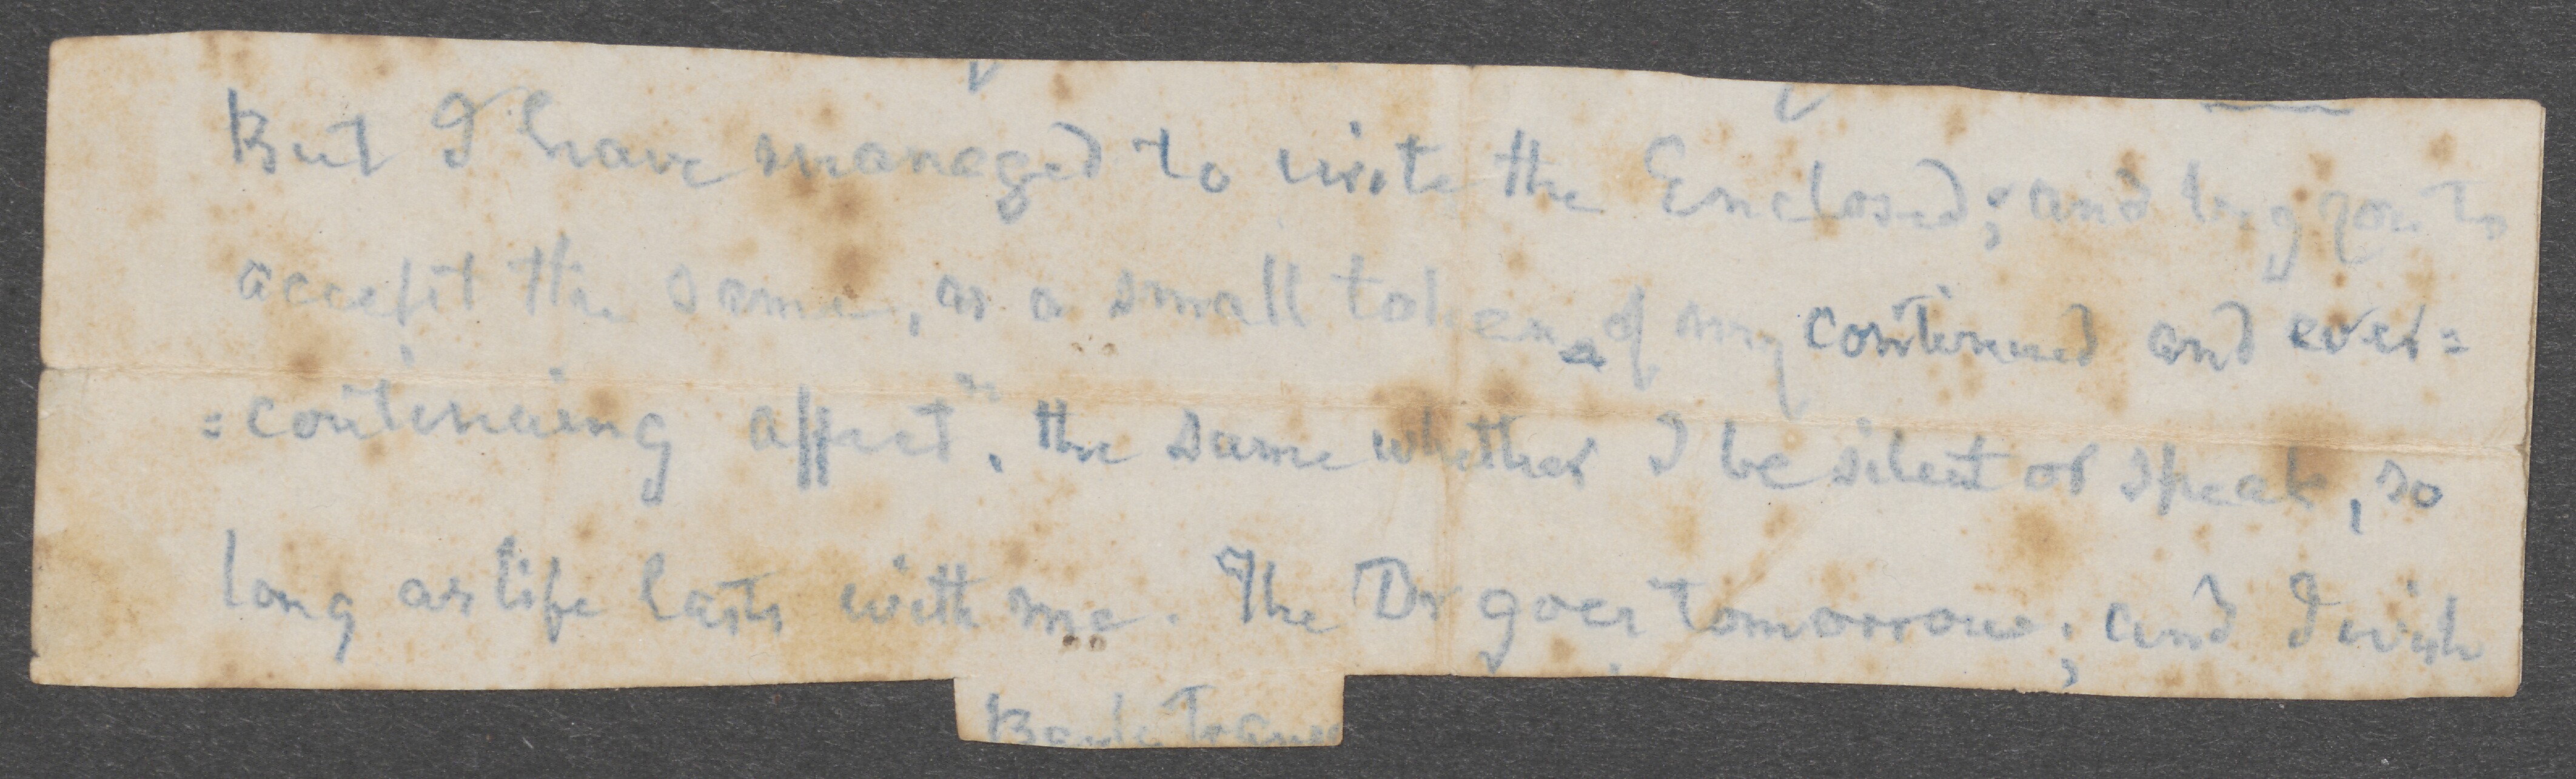 But I have managed to write the Enclosed; and beg you to
accept the same, as a small token of my continued and ever=
=continuing affectn. the same whether I be silent or speak, so
long as life lasts with me. The Dr goes tomorrow; and I wish